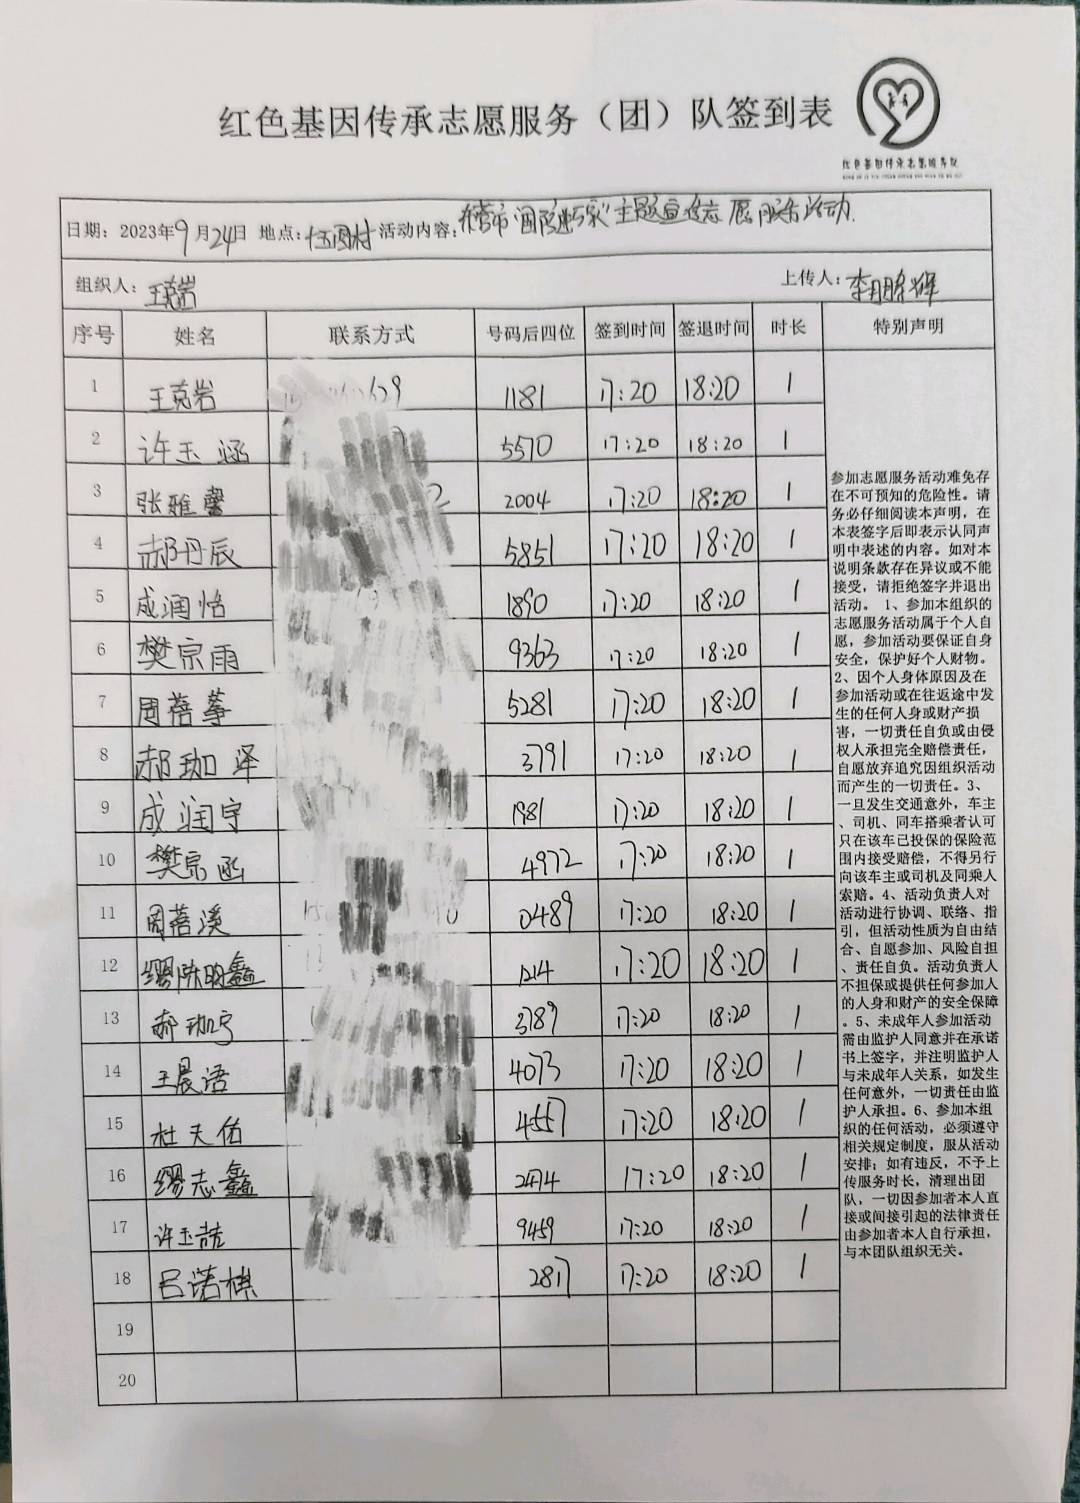 红色基因传承志愿服务（团）队签到表
红色基因传承志愿服务队
日期：2023年9月24日 地点：伍围村 活动内容：东营市"国防进万家"主题宣传志愿服务活动.
组织人：王克岩 上传人：李朋辉
序号 姓名 联系方式 号码后四位 签到时间 签退时间 时长 特别声明
1 王克岩 1181 17:20 18:20 1
2 许玉涵 5570 17:20 18:20 1
3 张雅馨 2004 17:20 18:20 1
4 郝丹辰 5851 17:20 18:20 1
5 成润怡 1890 17:20 18:20 1
6 樊宗雨 9363 17:20 18:20 1
7 周蓓蓦 5281 17:20 18:20 1
8 郝珈泽 3791 17:20 18:20 1
9 成润宇 1981 17:20 18:20 1
10 樊宗函 4972 17:20 18:20 1
11 周蓓溪 0489 17:20 18:20 1
12 缪陈明鑫 1214 17:20 18:20 1
13 郝珈宁 3789 17:20 18:20 1
14 王晨语 4073 17:20 18:20 1
15 杜天佑 4557 17:20 18:20 1
16 缪志鑫 2474 17:20 18:20 1
17 许玉喆 9459 17:20 18:20 1
18 吕诺棋 2817 17:20 18:20 1
19
20
参加志愿服务活动难免存
在不可预知的危险性。请
务必仔细阅读本声明，在
本表签字后即表示认同声
明中表述的内容。如对本
说明条款存在异议或不能
接受，请拒绝签字并退出
活动。 1、参加本组织的
志愿服务活动属于个人自
愿，参加活动要保证自身
安全，保护好个人财物。
2、因个人身体原因及在
参加活动或在往返途中发
生的任何人身或财产损
害，一切责任自负或由侵
权人承担完全赔偿责任，
自愿放弃追究因组织活动
而产生的一切责任。3、
一旦发生交通意外，车主
、司机、同车搭乘者认可
只在该车已投保的保险范
围内接受赔偿，不得另行
向该车主或司机及同乘人
索赔。4、活动负责人对
活动进行协调、联络、指
引，但活动性质为自由结
合、自愿参加、风险自担
、责任自负。活动负责人
不担保或提供任何参加人
的人身和财产的安全保障
。5、未成年人参加活动
需由监护人同意并在承诺
书上签字，并注明监护人
与未成年人关系，如发生
任何意外，一切责任由监
护人承担。6、参加本组
织的任何活动，必须遵守
相关规定制度，服从活动
安排；如有违反，不予上
传服务时长，清理出团
队，一切因参加者本人直
接或间接引起的法律责任
由参加者本人自行承担，
与本团队组织无关。